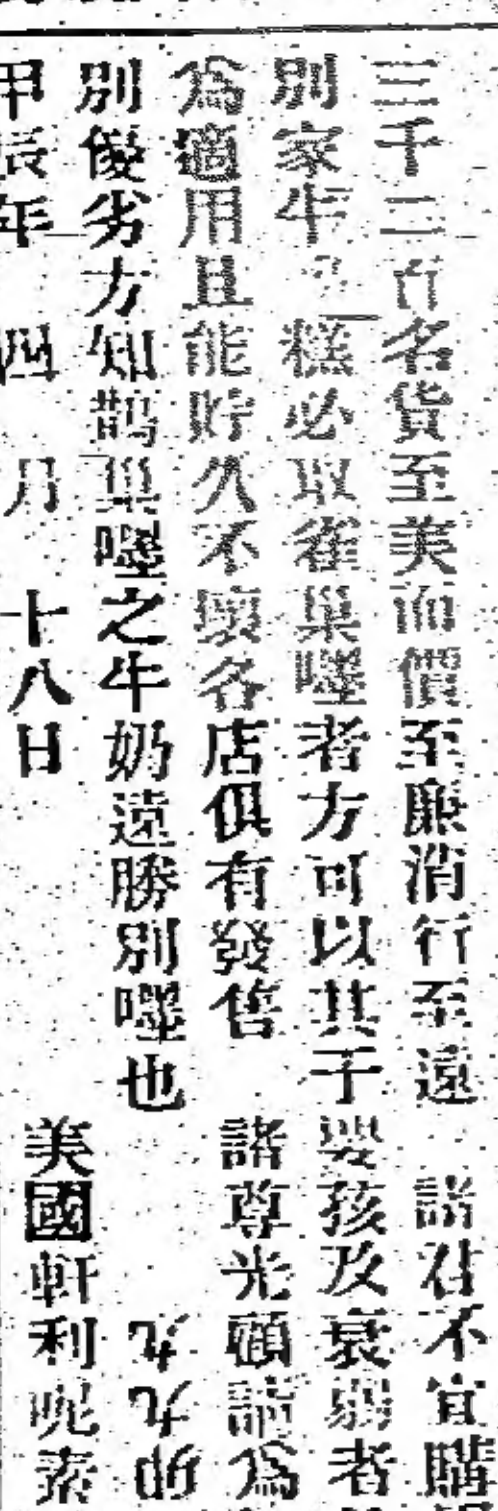 三千二百名貨至美而價至廉消行至遠 諸君不宜購
別家牛 糕必取雀巢嘜者方可以其于嬰孩及衰弱者
為適用且能貯久不壞各店俱有發售 諸尊光顧請為
別優劣方知鵲巢嘜之牛奶遠勝別嘜也
甲辰年 四 月 十八日 美國軒利呢素